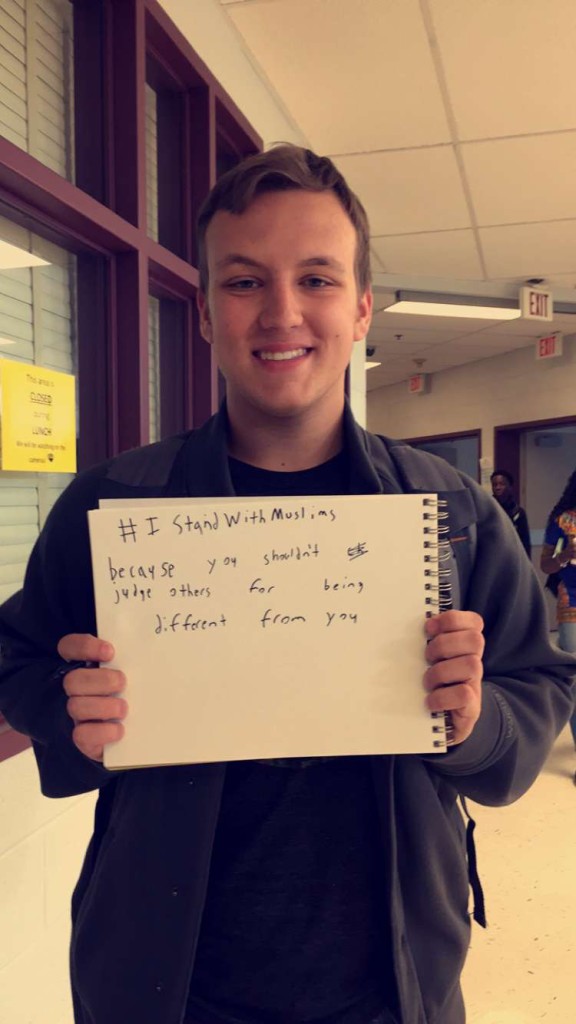 # I Stand With Muslims
because you shouldn't
judge others for being
different from you
This area is
CLOSED
during
LUNCH
We will be watching on the
cameras
EXIT
EXIT